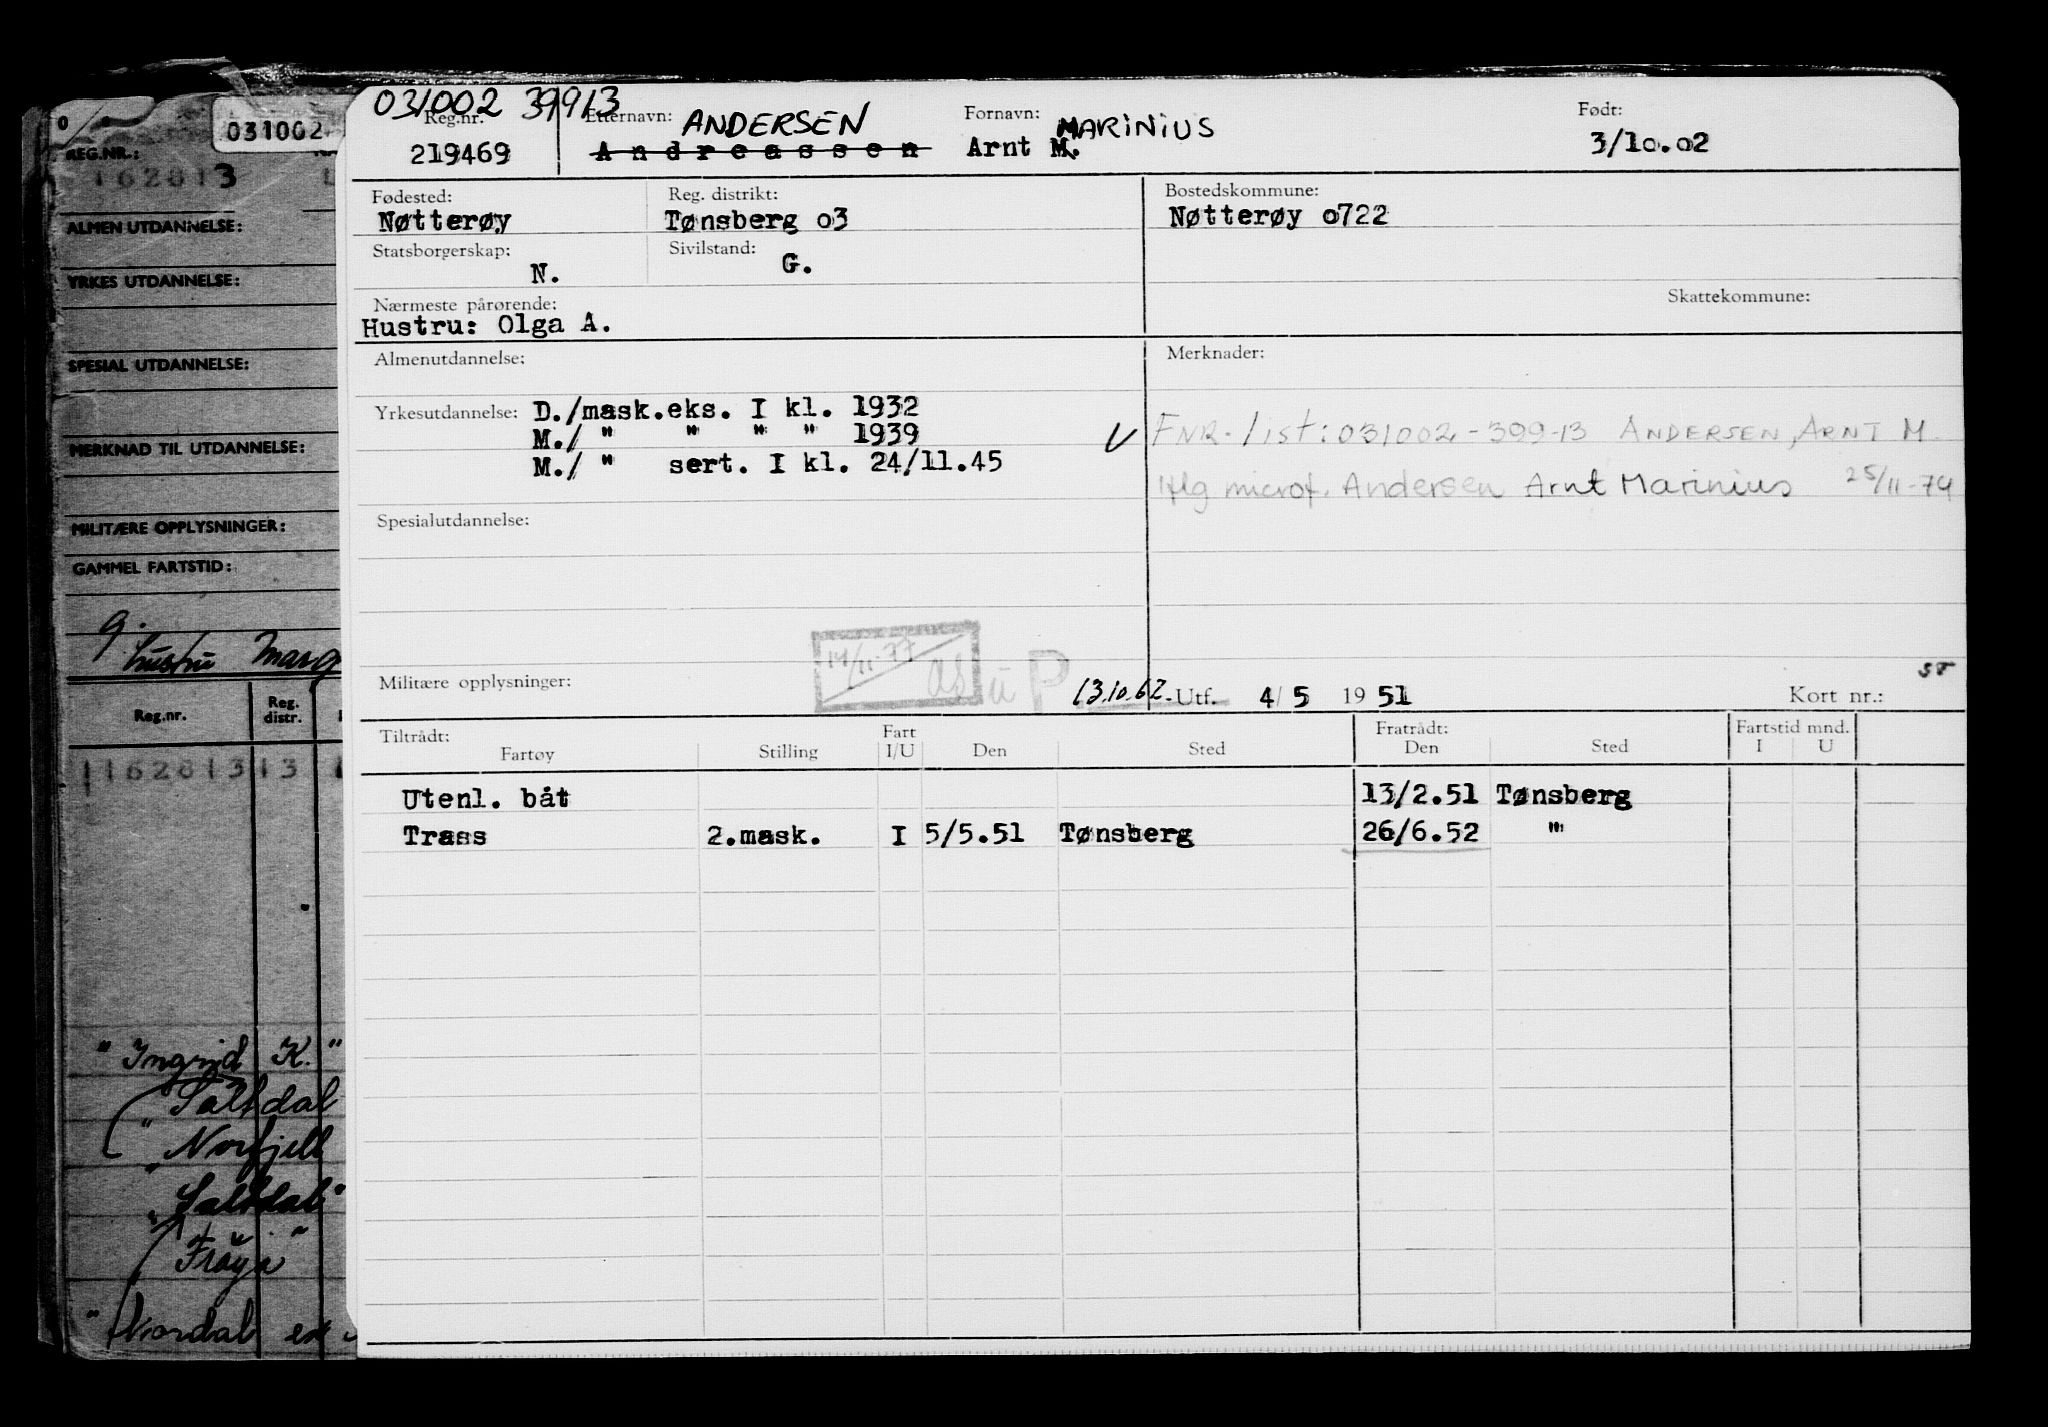 031002 39913
Reg.nr. Etternavn: ANDERSEN Fornavn: MARINIUS Født:
219469 Andreassen Arnt M. 3/10.02
Fødested: Reg. distrikt: Bostedskommune:
Nøtterøy Tønsberg o3 Nøtterøy o722
Statsborgerskap: Sivilstand:
N. G.
Nærmeste pårørende: Skattekommune:
Hustru: Olga A.
Almenutdannelse: Merknader:
Yrkesutdannelse: D./mask.eks. I kl. 1932
M./ " " " " 1939
V FNR. list: 031002-399-13 ANDERSEN, ARNT M.
M./ " sert. I kl. 24/11.45
microf. Andersen Arnt Marinius 25/11-74
Spesialutdannelse:
14/11-77
Militære opplysninger: 13.10.62. Utf. 4/5 1951 Kort nr.:
Tiltrådt: Fart Fratrådt: Fartstid mnd.
Fartøy Stilling I/U Den Sted Den Sted I U
Utenl. båt 13/2.51 Tønsberg
Trass 2.mask. I 5/5.51 Tønsberg 26/6.52 "
031002
REG.NR.:
162813
ALMEN UTDANNELSE:
YRKES UTDANNELSE:
SPESIAL UTDANNELSE:
MERKNAD TIL UTDANNELSE:
MILITÆRE OPPLYSNINGER:
GAMMEL FARTSTID:
g.
hustru Marg
Reg.nr. Reg. distr.
162813 13
"Ingrid K."
Saltdal
" Norfjell
"Saltdal"
"Fröya"
"Nordal ex